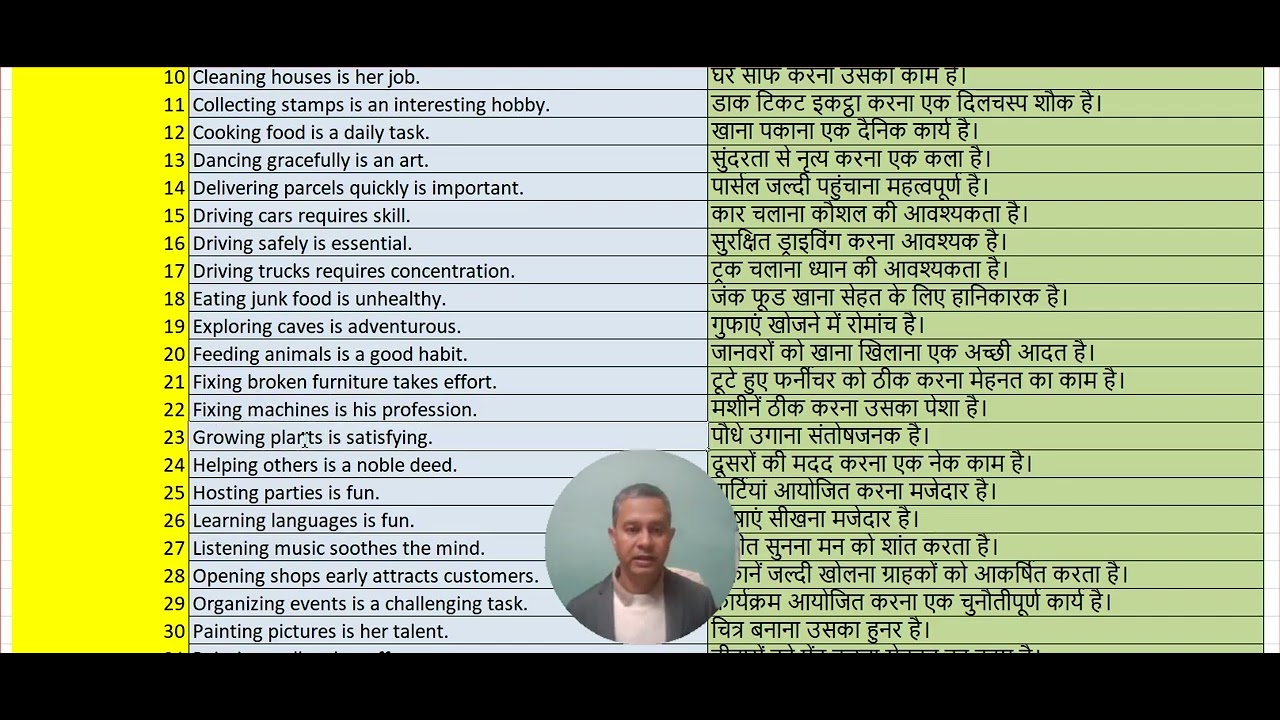 10 Cleaning houses is her job. घर साफ करना उसका काम है।
11 Collecting stamps is an interesting hobby. डाक टिकट इकट्ठा करना एक दिलचस्प शौक है।
12 Cooking food is a daily task. खाना पकाना एक दैनिक कार्य है।
13 Dancing gracefully is an art. सुंदरता से नृत्य करना एक कला है।
14 Delivering parcels quickly is important. पार्सल जल्दी पहुंचाना महत्वपूर्ण है।
15 Driving cars requires skill. कार चलाना कौशल की आवश्यकता है।
16 Driving safely is essential. सुरक्षित ड्राइविंग करना आवश्यक है।
17 Driving trucks requires concentration. ट्रक चलाना ध्यान की आवश्यकता है।
18 Eating junk food is unhealthy. जंक फूड खाना सेहत के लिए हानिकारक है।
19 Exploring caves is adventurous. गुफाएं खोजने में रोमांच है।
20 Feeding animals is a good habit. जानवरों को खाना खिलाना एक अच्छी आदत है।
21 Fixing broken furniture takes effort. टूटे हुए फर्नीचर को ठीक करना मेहनत का काम है।
22 Fixing machines is his profession. मशीनें ठीक करना उसका पेशा है।
23 Growing plants is satisfying. पौधे उगाना संतोषजनक है।
24 Helping others is a noble deed. दूसरों की मदद करना एक नेक काम है।
25 Hosting parties is fun. आयोजित करना मजेदार है।
26 Learning languages is fun. सीखना मजेदार है।
27 Listening music soothes the mind. सुनना मन को शांत करता है।
28 Opening shops early attracts customers. जल्दी खोलना ग्राहकों को आकर्षित करता है।
29 Organizing events is a challenging task. कार्यक्रम आयोजित करना एक चुनौतीपूर्ण कार्य है।
30 Painting pictures is her talent. चित्र बनाना उसका हुनर है।